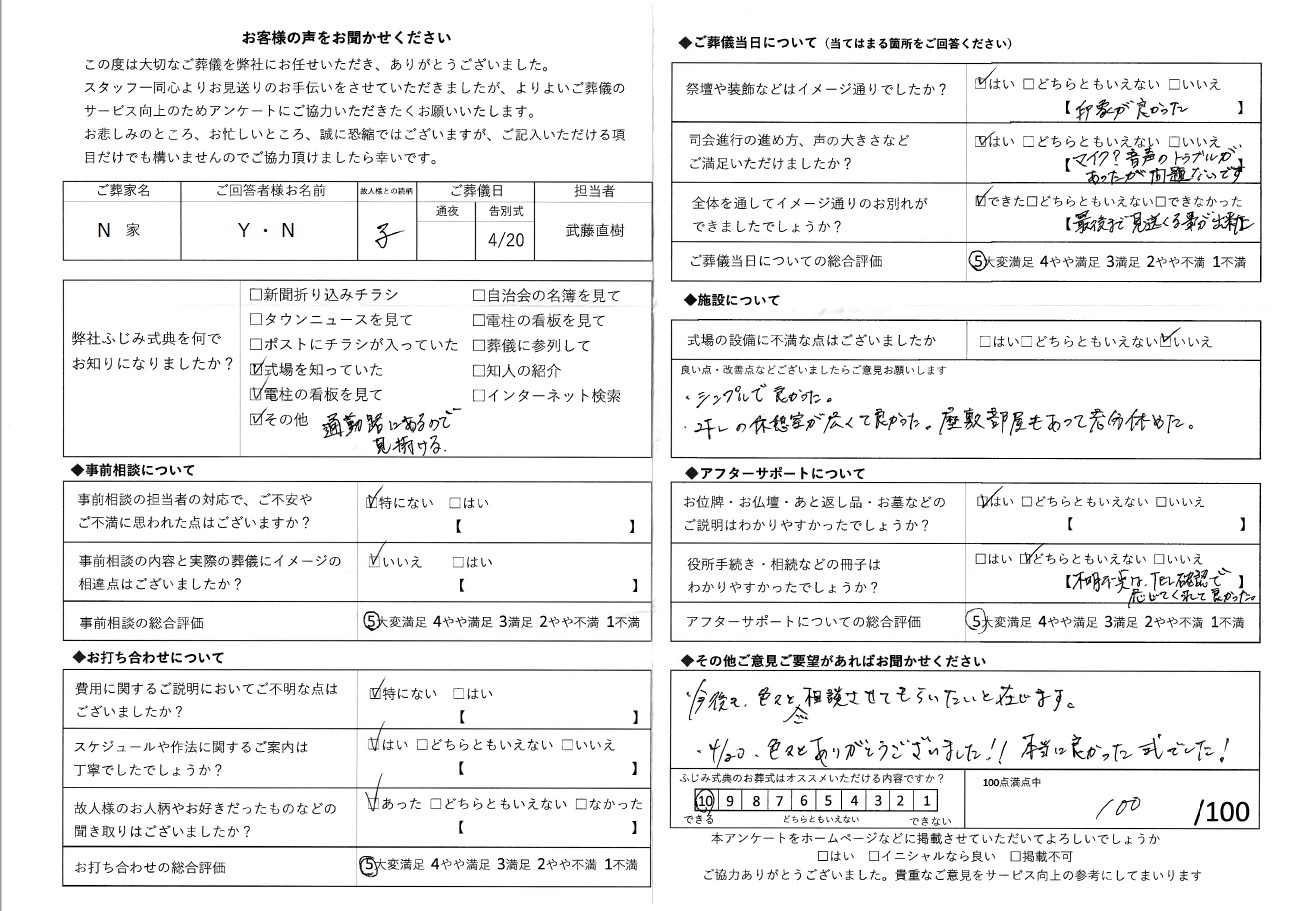 お客様の声をお聞かせください
この度は大切なご葬儀を弊社にお任せいただき、ありがとうございました。
スタッフ一同心よりお見送りのお手伝いをさせていただきましたが、よりよいご葬儀の
サービス向上のためアンケートにご協力いただきたくお願いいたします。
お悲しみのところ、お忙しいところ、誠に恐縮ではございますが、ご記入いただける項
目だけでも構いませんのでご協力頂けましたら幸いです。
ご葬家名 ご回答者様お名前 故人様との続柄 ご葬儀日 担当者
通夜 告別式
N 家 Y・N 子 4/20 武藤直樹
弊社ふじみ式典を何で
お知りになりましたか？
□新聞折り込みチラシ □自治会の名簿を見て
□タウンニュースを見て □電柱の看板を見て
□ポストにチラシが入っていた □葬儀に参列して
☑式場を知っていた □知人の紹介
☑電柱の看板を見て □インターネット検索
☑その他 通勤路にあるので
見掛ける.
◆事前相談について
事前相談の担当者の対応で、ご不安や
ご不満に思われた点はございますか？
☑特にない □はい
【 】
事前相談の内容と実際の葬儀にイメージの
相違点はございましたか？
☑いいえ □はい
【 】
事前相談の総合評価 5大変満足 4やや満足 3満足 2やや不満 1不満
◆お打ち合わせについて
費用に関するご説明においてご不明な点は
ございましたか？
☑特にない □はい
【 】
スケジュールや作法に関するご案内は
丁寧でしたでしょうか？
☑はい □どちらともいえない □いいえ
【 】
故人様のお人柄やお好きだったものなどの
聞き取りはございましたか？
☑あった □どちらともいえない □なかった
【 】
お打ち合わせの総合評価 5大変満足 4やや満足 3満足 2やや不満 1不満
◆ご葬儀当日について（当てはまる箇所をご回答ください）
祭壇や装飾などはイメージ通りでしたか？
☑はい □どちらともいえない □いいえ
【印象が良かった 】
司会進行の進め方、声の大きさなど
ご満足いただけましたか？
☑はい □どちらともいえない □いいえ
【マイク？音声のトラブルが、
あったが問題ないです】
全体を通してイメージ通りのお別れが
できましたでしょうか？
☑できた□どちらともいえない□できなかった
【最後まで見送くる事が出来た】
ご葬儀当日についての総合評価 5大変満足 4やや満足 3満足 2やや不満 1不満
◆施設について
式場の設備に不満な点はございましたか □はい□どちらともいえない☑いいえ
良い点・改善点などございましたらご意見お願いします
・シンプルで良かった。
・2Fの休憩室が広くて良かった。座敷部屋もあって充分休めた。
◆アフターサポートについて
お位牌・お仏壇・あと返し品・お墓などの
ご説明はわかりやすかったでしょうか？
☑はい □どちらともいえない □いいえ
【 】
役所手続き・相続などの冊子は
わかりやすかったでしょうか？
□はい ☑どちらともいえない □いいえ
【不明な点は、TEL確認で
応じてくれて良かった。】
アフターサポートについての総合評価 5大変満足 4やや満足 3満足 2やや不満 1不満
◆その他ご意見ご要望があればお聞かせください
・今後も、色々と相談させてもらいたいと存じます。
・4/20、色々とありがとうございました!! 本当に良かった式でした!
ふじみ式典のお葬式はオススメいただける内容ですか？
10 9 8 7 6 5 4 3 2 1
できる どちらともいえない できない
100点満点中
100 /100
本アンケートをホームページなどに掲載させていただいてよろしいでしょうか
□はい □イニシャルなら良い □掲載不可
ご協力ありがとうございました。貴重なご意見をサービス向上の参考にしてまいります